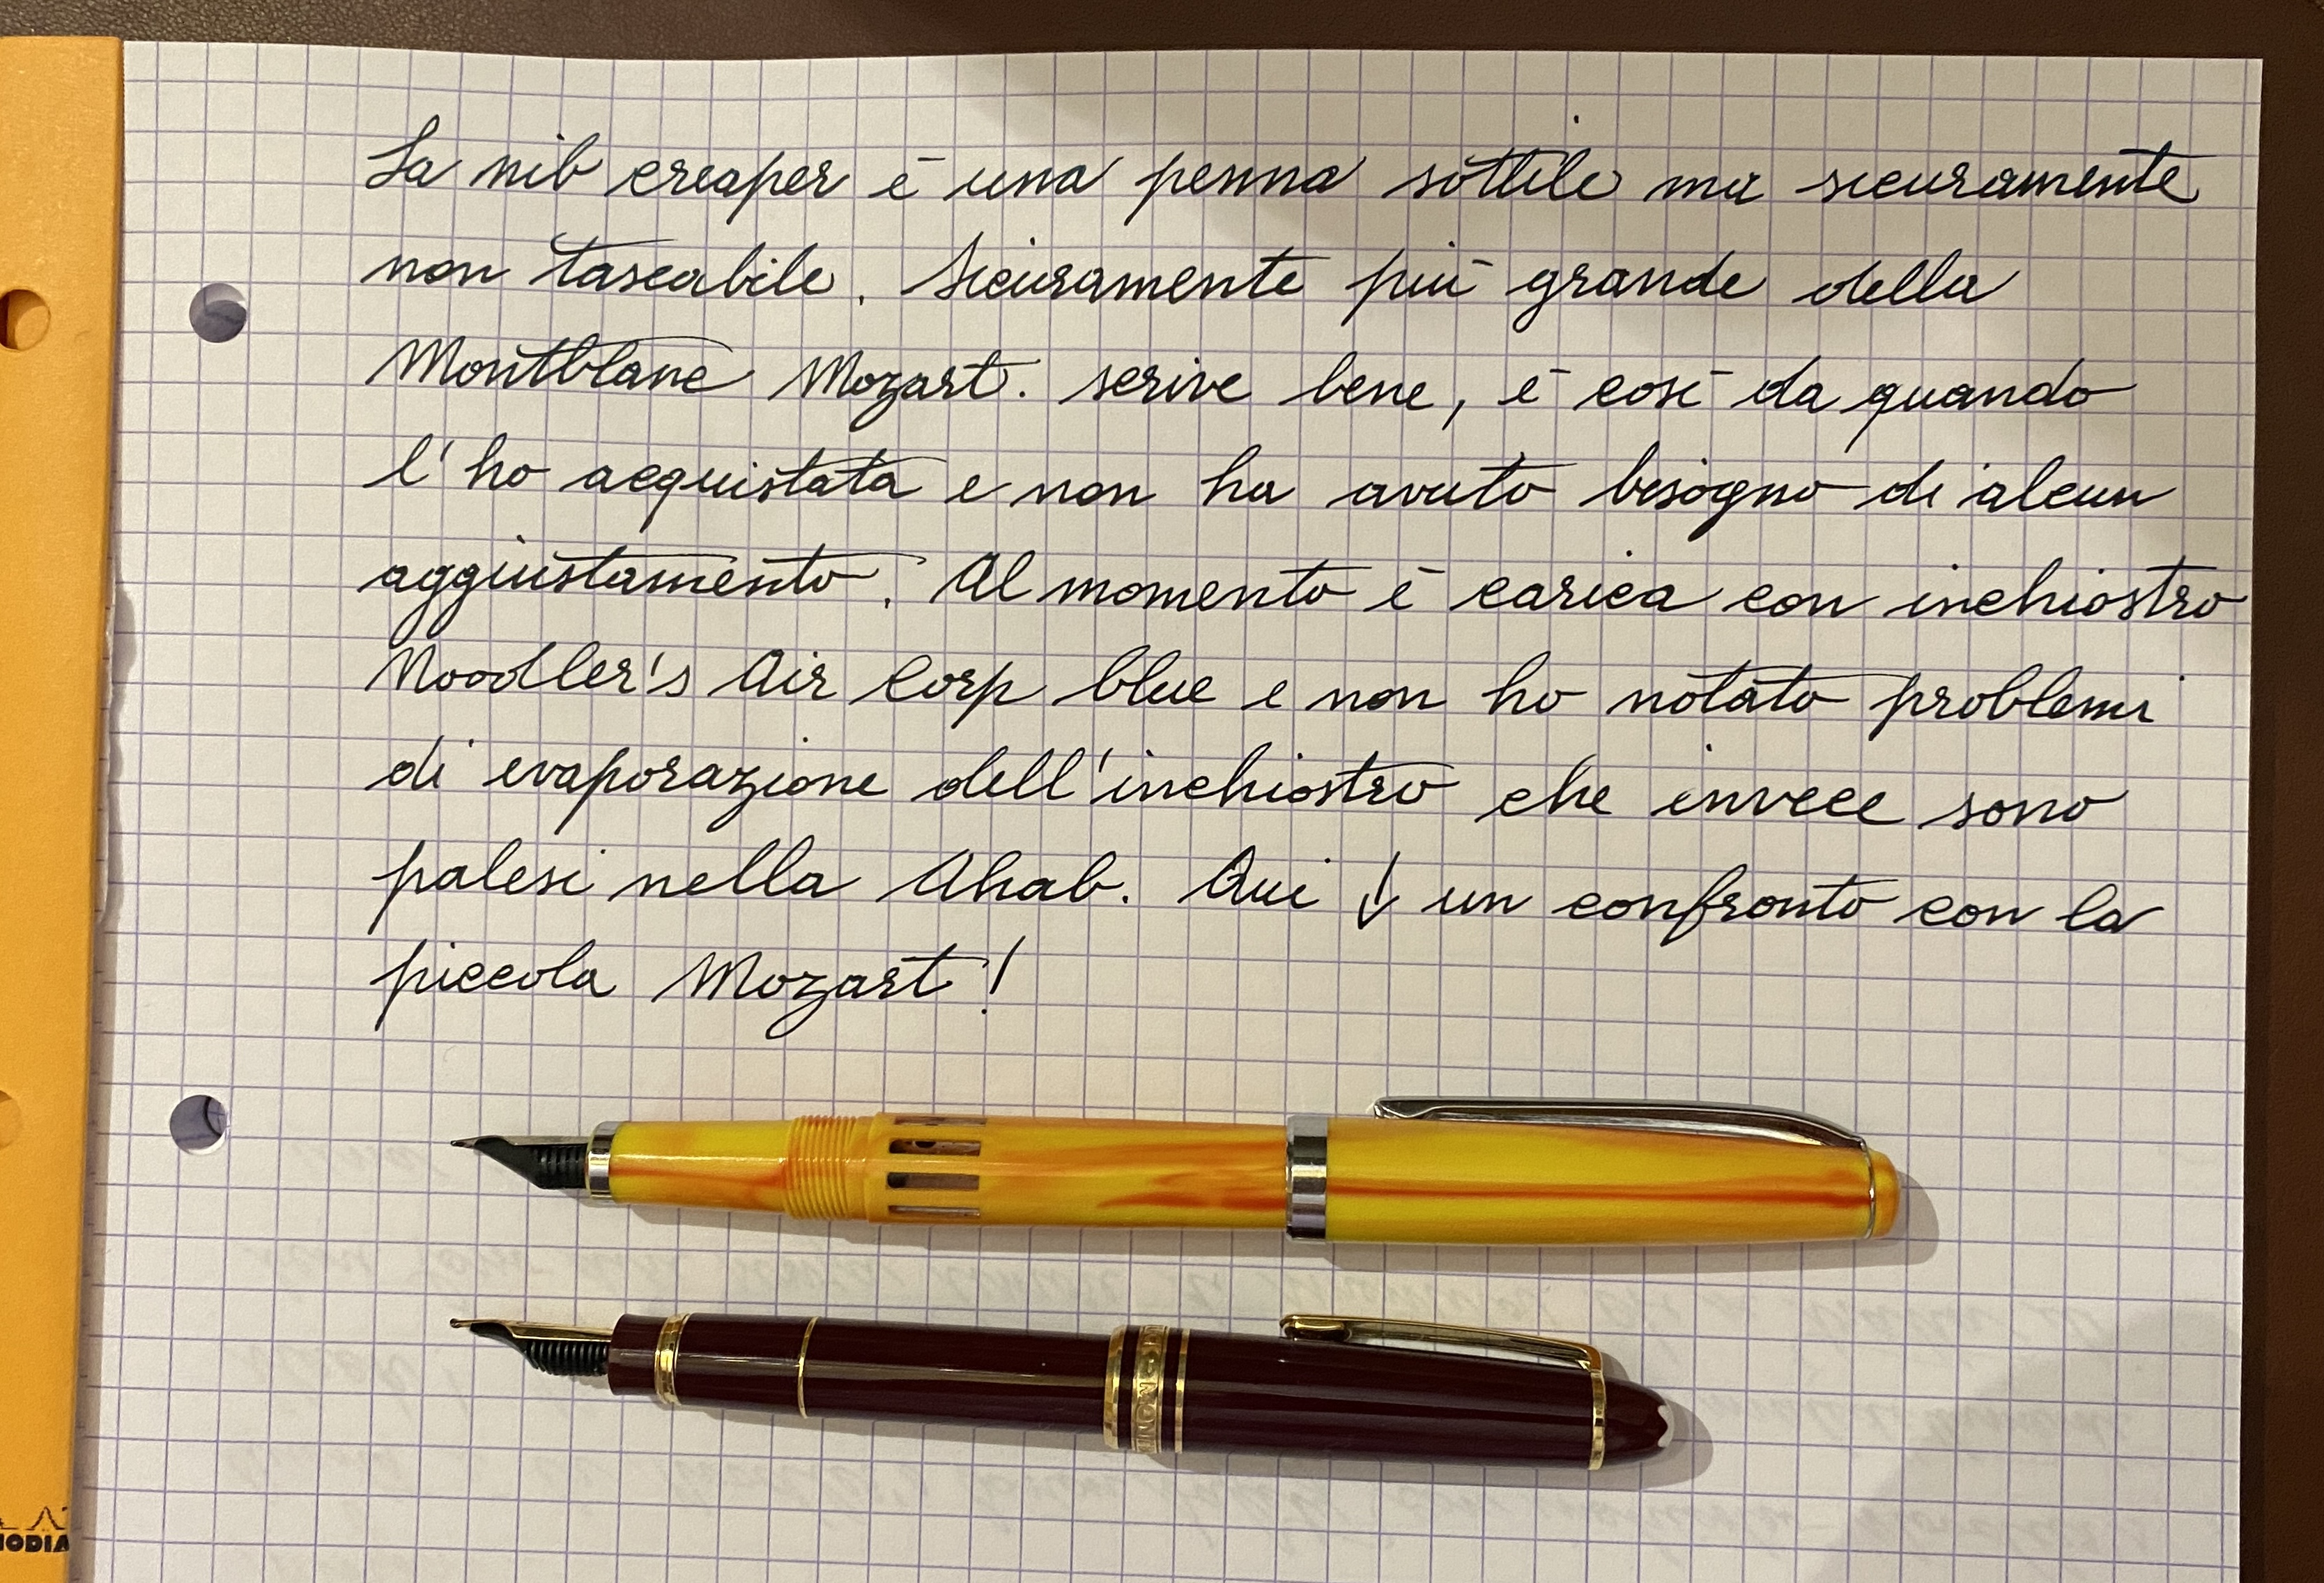 La nib creaper è una penna sottile ma sicuramente
non tascabile. Sicuramente più grande della
Montblanc Mozart. scrive bene, è così da quando
l'ho acquistata e non ha avuto bisogno di alcun
aggiustamento. Al momento è carica con inchiostro
Noodler's Air Corp blue e non ho notato problemi
di evaporazione dell'inchiostro che invece sono
palesi nella Ahab. Qui ↓ un confronto con la
piccola Mozart!